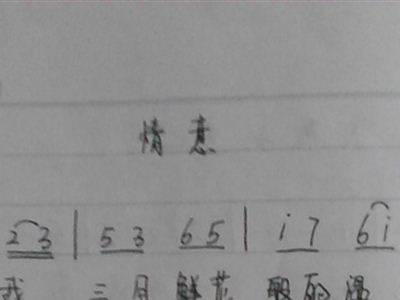 情意
2 3 | 5 3 6 5 | i 7 6 i
我 三月鲜花